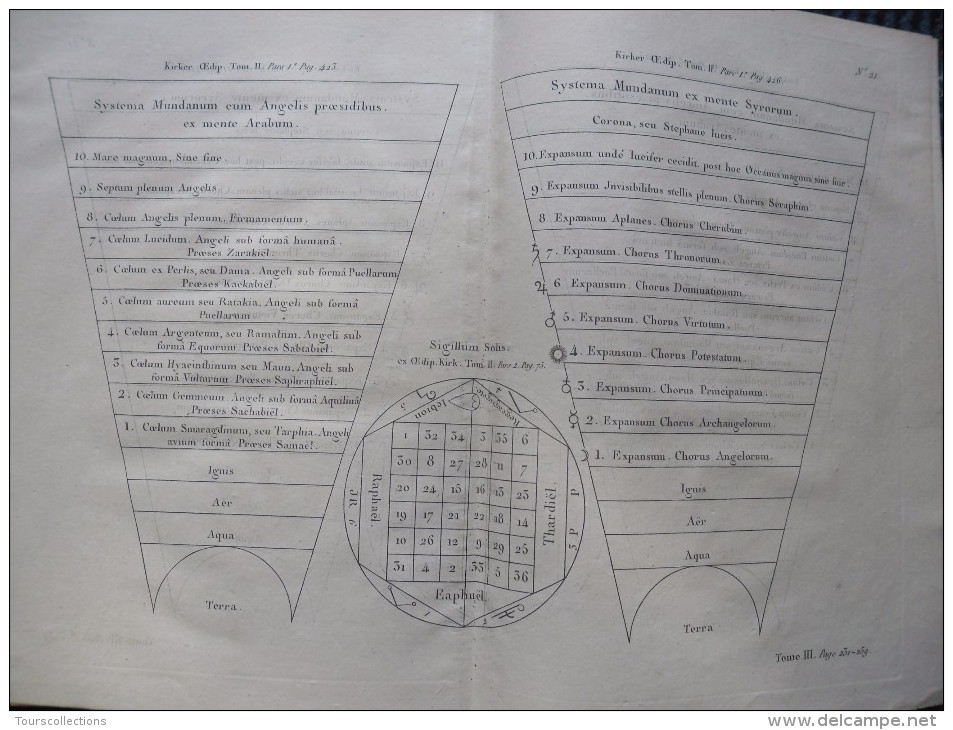 Kirker Œdip. Tom. II. Pars 1ª Pag. 425.
Systema Mundanum cum Angelis præsidibus.
ex mente Arabum.
10. Mare magnum, Sine fine
9. Septum plenum Angelis
8. Cœlum Angelis plenum, Firmamentum.
7. Cœlum Lucidum. Angeli sub formâ humanâ.
Præses Zarakiel.
6. Cœlum ex Perlis, seu Dama. Angeli sub formâ Puellarum
Præses Kackabiel.
5. Cœlum aureum seu Ratakia, Angeli sub formâ
Puellarum
4. Cœlum Argenteum, seu Ramalum. Angeli sub
formâ Equorum Præses Sabtabiel.
3. Cœlum Hyacinthinum seu Maun, Angeli sub
formâ Vulturum Præses Saphraphiel.
2. Cœlum Gemmeum Angeli sub formâ Aquilinâ
Præses Sachabiel.
1. Cœlum Smaragdinum, seu Tarphia. Angeli
avium formâ. Præses Samael.
Ignis
Aër
Aqua
Terra.
Sigillum Solis.
ex Œdip. Kirk. Tom. II. Pars 2. Pag. 75.
Raphaël.
Thardiël.
Eaphuël.
1 32 34 3 35 6
30 8 27 28 11 7
20 24 15 16 13 23
19 17 21 22 18 14
10 26 12 9 29 25
31 4 2 33 5 36
Kirker Œdip. Tom. II. Pars 1ª Pag 426.
Nº 21.
Systema Mundanum ex mente Syrorum.
Corona, seu Stephane lucis.
10. Expansum undé lucifer cecidit, post hoc Oceanus magnus sine fine.
9. Expansum Invisibilibus stellis plenum. Chorus Seraphim.
8 Expansum Aplanes. Chorus Cherubim.
♄ 7. Expansum. Chorus Thronorum.
♃ 6 Expansum. Chorus Dominationum.
♂ 5. Expansum. Chorus Virtutum.
4. Expansum. Chorus Potestatum
3. Expansum. Chorus Principatuum.
☿ 2. Expansum Chorus Archangelorum.
☽ 1. Expansum. Chorus Angelorum.
Ignis
Aër
Aqua
Terra
Tome III. Page 231-239.
Tourscollections
www.delcampe.net